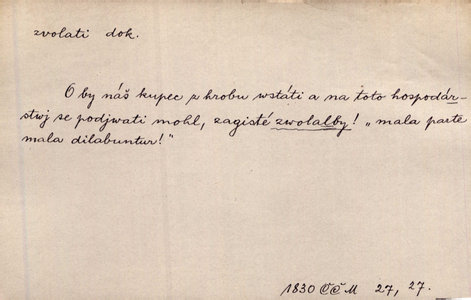 zvolati dok.
O by náš kupec z hrobu wstáti a na toto hospodár-
stwj se podjwati mohl, zagisté zwolalby! „mala parte
mala dilabuntur!"
1830 ČČM 27, 27.